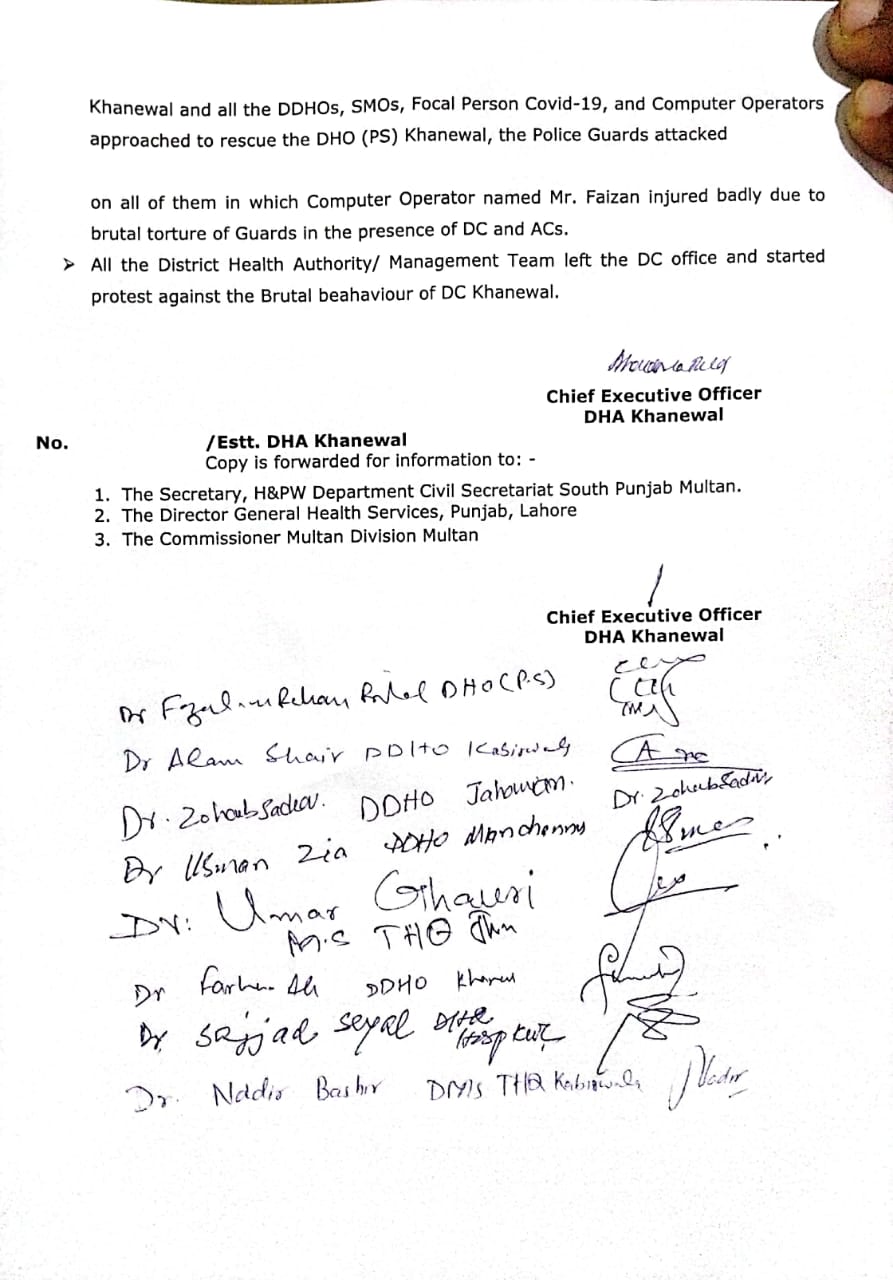 Khanewal and all the DDHOs, SMOs, Focal Person Covid-19, and Computer Operators
approached to rescue the DHO (PS) Khanewal, the Police Guards attacked
on all of them in which Computer Operator named Mr. Faizan injured badly due to
brutal torture of Guards in the presence of DC and ACs.
➢ All the District Health Authority/ Management Team left the DC office and started
protest against the Brutal beahaviour of DC Khanewal.
Chief Executive Officer
DHA Khanewal
No. /Estt. DHA Khanewal
Copy is forwarded for information to: -
1. The Secretary, H&PW Department Civil Secretariat South Punjab Multan.
2. The Director General Health Services, Punjab, Lahore
3. The Commissioner Multan Division Multan
Chief Executive Officer
DHA Khanewal
Dr DHO (P.S)
Dr Alam Shair DDHO
Dr. Zohaib DDHO Dr. Zohaib
Dr Usman Zia DDHO
Dr: Umar Ghauri
M.S THQ
Dr Ali DDHO
Dr Sajjad Seyal DHQ
Hosp
Dr. Nadir Bashir DMS THQ Nadir